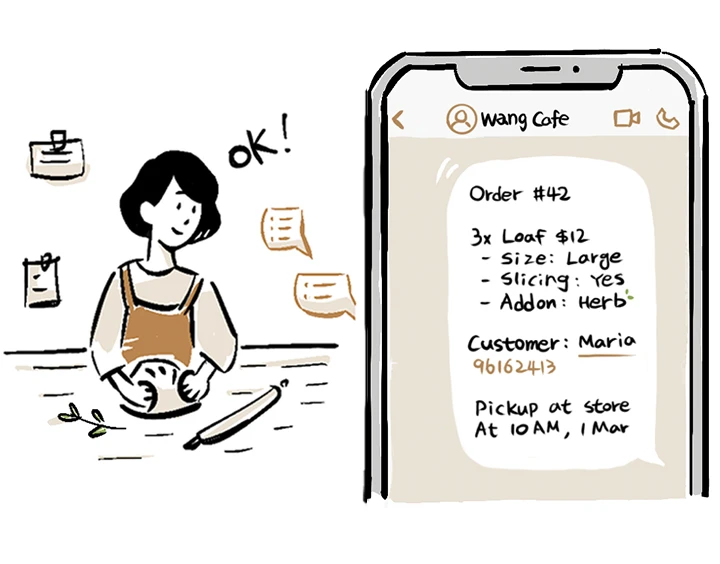 OK!
Wang Cafe
Order #42
3x Loaf $12
- Size: Large
- Slicing: Yes
- Addon: Herb
Customer: Maria
96162413
Pickup at store
At 10 AM, 1 Mar